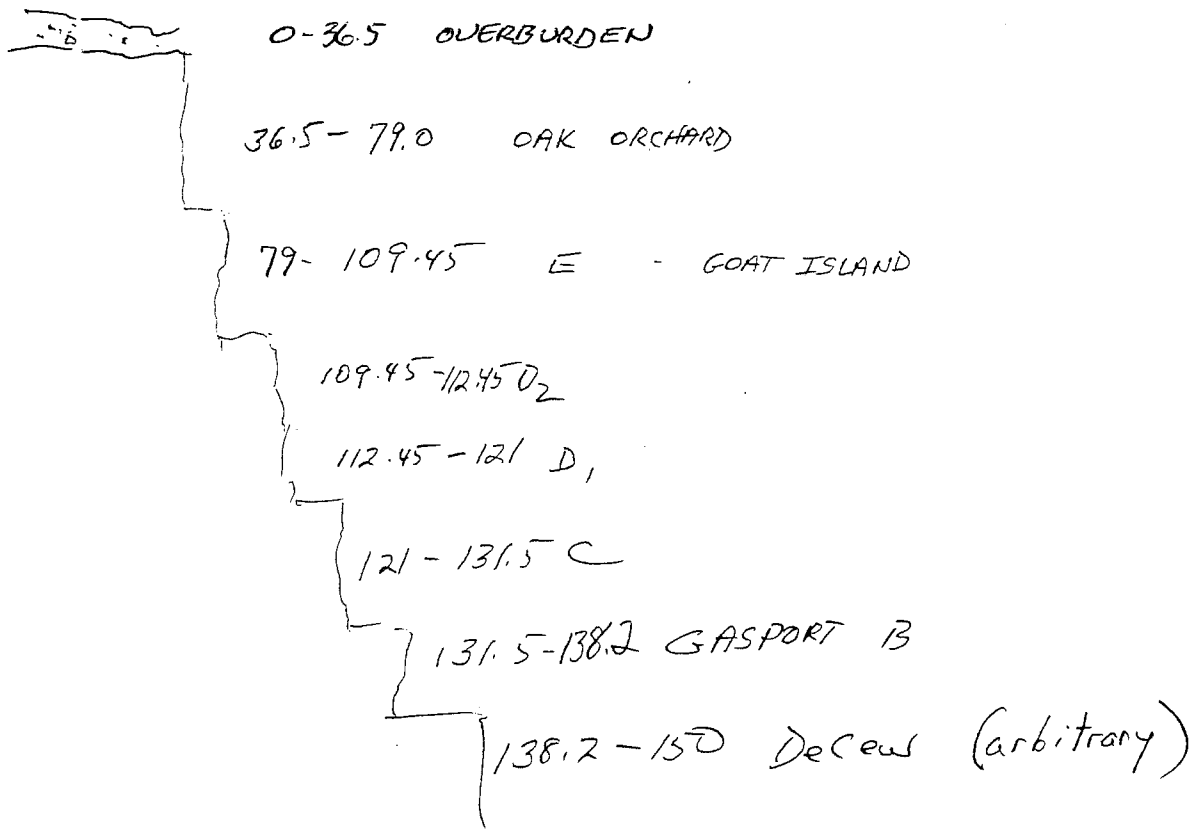 0-36.5 OVERBURDEN
36.5 - 79.0 OAK ORCHARD
79- 109.45 E - GOAT ISLAND
109.45-112.45 D2
112.45 - 121 D1
121 - 131.5 C
131.5-138.2 GASPORT B
138.2 - 150 DeCew (arbitrary)